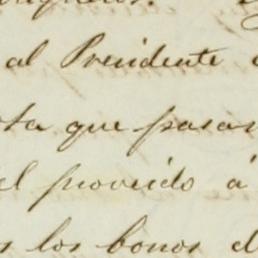 al Presidente
ota que pasar
el proveido á
s los bonos d